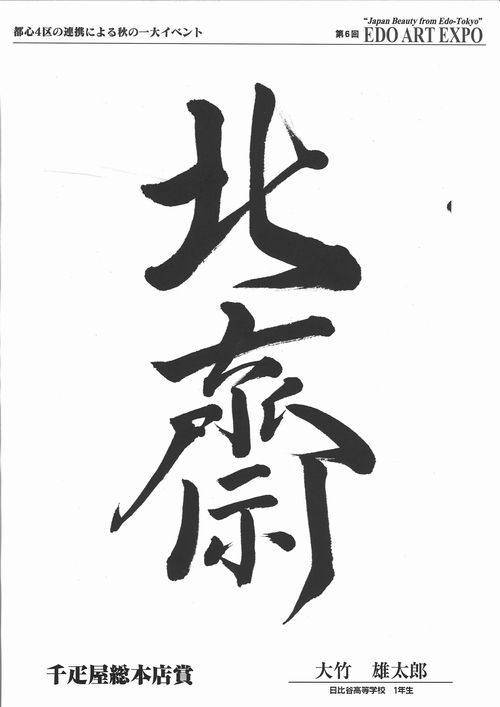 都心4区の連携による秋の一大イベント
"Japan Beauty from Edo-Tokyo"
第6回 EDO ART EXPO
北
齋
千疋屋総本店賞
大竹 雄太郎
日比谷高等学校 1年生